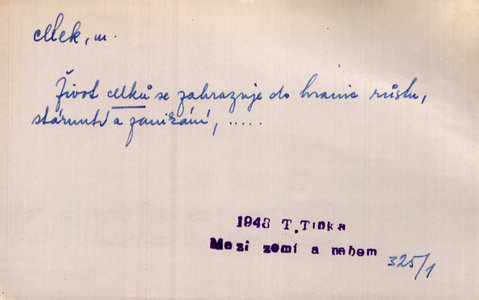 celek, m.
Život celků se zahrazuje do hranic růstu,
stárnutí a zanikání, .....
1943 T.Tinka
Mezi zemí a nebem
325/1